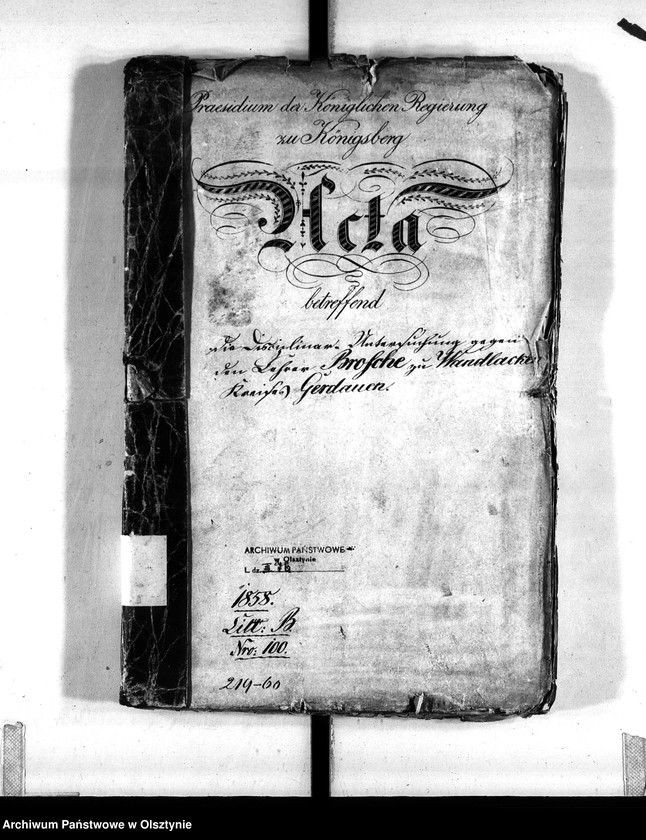 Praesidium der Königlichen Regierung
zu Königsberg
Acta
betreffend
die Disciplinar-Untersuchung gegen
den Lehrer Brosche zu Wandlacken
Kreises Gerdauen.
ARCHIWUM PAŃSTWOWE
Olsztynie
L. dz.
1858.
Litt: B.
Nro: 100.
219-60
Archiwum Państwowe w Olsztynie